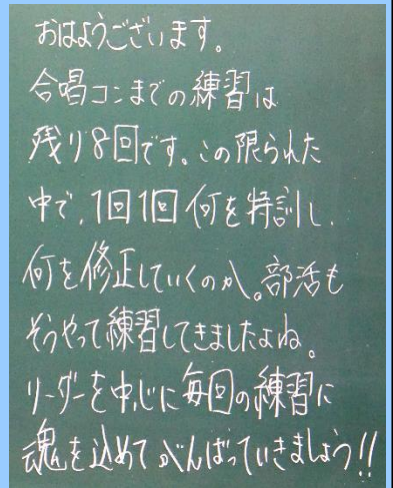 おはようございます。
合唱コンまでの練習は
残り8回です。この限られた
中で、1回1回何を特訓し、
何を修正していくのか。部活も
そうやって練習してきましたよね。
リーダーを中心に毎回の練習に
魂を込めてがんばっていきましょう!!